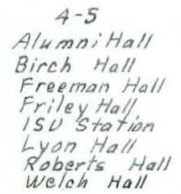 4-5
Alumni Hall
Birch Hall
Freeman Hall
Friley Hall
ISU Station
Lyon Hall
Roberts Hall
Welch Hall